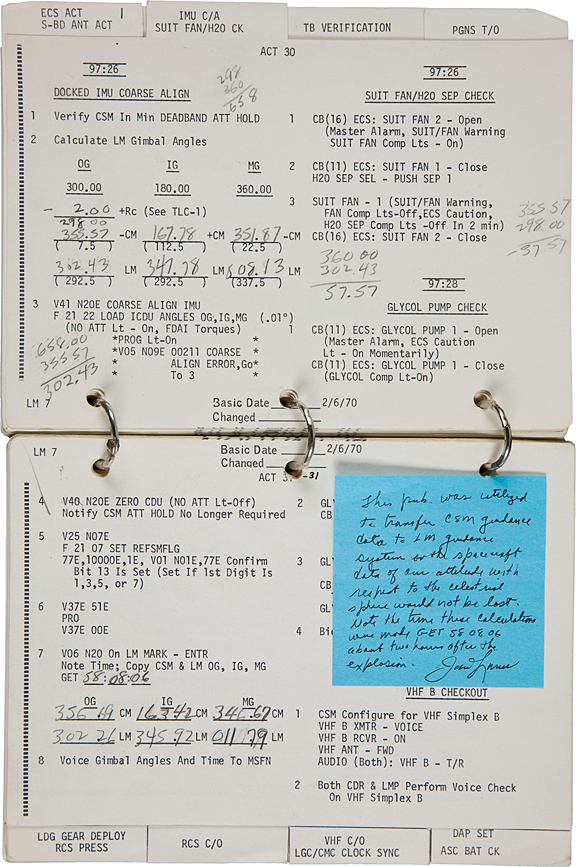 ECS ACT
S-BD ANT ACT
IMU C/A
SUIT FAN/H2O CK
TB VERIFICATION
PGNS T/O
ACT 30
97:26
DOCKED IMU COARSE ALIGN
298
360
658
1 Verify CSM In Min DEADBAND ATT HOLD
2 Calculate LM Gimbal Angles
OG IG MG
300.00 180.00 360.00
- 2.00 +Rc (See TLC-1)
298 00
355.57 -CM 167.78 +CM 351.87 -CM
( 7.5 ) ( 112.5 ) ( 22.5 )
302.43 LM 347.78 LM 008.13 LM
( 292.5 ) ( 292.5 ) (337.5 )
3 V41 N20E COARSE ALIGN IMU
F 21 22 LOAD ICDU ANGLES OG,IG,MG (.01°)
(NO ATT Lt - On, FDAI Torques)
*PROG Lt-On *
*V05 N09E 00211 COARSE *
* ALIGN ERROR,Go*
* To 3 *
658.00
355 57
302.43
97:26
SUIT FAN/H2O SEP CHECK
1 CB(16) ECS: SUIT FAN 2 - Open
(Master Alarm, SUIT/FAN Warning
SUIT FAN Comp Lts - On)
2 CB(11) ECS: SUIT FAN 1 - Close
H2O SEP SEL - PUSH SEP 1
3 SUIT FAN - 1 (SUIT/FAN Warning,
FAN Comp Lts-Off,ECS Caution,
H2O SEP Comp Lts -Off In 2 min)
CB(16) ECS: SUIT FAN 2 - Close
355 57
298.00
- 57 57
360 00
302.43
57.57
97:28
GLYCOL PUMP CHECK
1 CB(11) ECS: GLYCOL PUMP 1 - Open
(Master Alarm, ECS Caution
Lt - On Momentarily)
CB(11) ECS: GLYCOL PUMP 1 - Close
(GLYCOL Comp Lt-On)
LM 7
Basic Date 2/6/70
Changed
LM 7
Basic Date 2/6/70
Changed
ACT 31
4 V40 N20E ZERO CDU (NO ATT Lt-Off)
Notify CSM ATT HOLD No Longer Required
5 V25 N07E
F 21 07 SET REFSMFLG
77E,10000E,1E, V01 N01E,77E Confirm
Bit 13 Is Set (Set If 1st Digit Is
1,3,5, or 7)
6 V37E 51E
PRO
V37E 00E
7 V06 N20 On LM MARK - ENTR
Note Time; Copy CSM & LM OG, IG, MG
GET 58:08:06
OG IG MG
356 69 CM 163 42 CM 346 67 CM
302 26 LM 345 92 LM 011 79 LM
8 Voice Gimbal Angles And Time To MSFN
2 GL
CB
3 GL
CB
GL
4
This pub. was utilized
to transfer CSM guidance
data to LM guidance
system so the spacecraft
data of our attitude with
respect to the celestial
sphere would not be lost.
Note the time these calculations
were made GET 58 08 06
about two hours after the
explosion.
VHF B CHECKOUT
1 CSM Configure for VHF Simplex B
VHF B XMTR - VOICE
VHF B RCVR - ON
VHF ANT - FWD
AUDIO (Both): VHF B - T/R
2 Both CDR & LMP Perform Voice Check
On VHF Simplex B
LDG GEAR DEPLOY
RCS PRESS
RCS C/O
VHF C/O
LGC/CMC CLOCK SYNC
DAP SET
ASC BAT CK